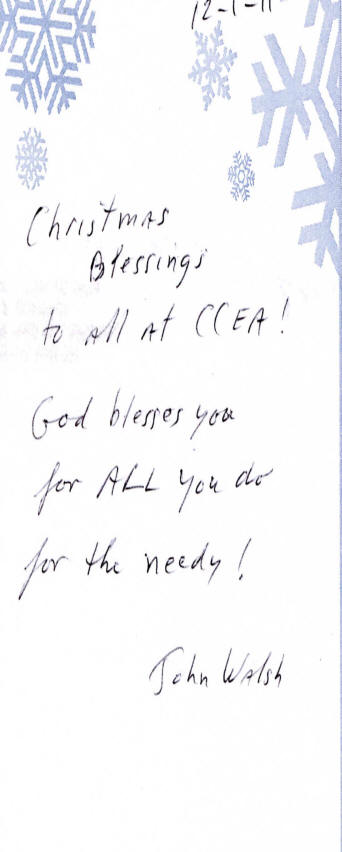 12-1-11
Christmas
Blessings
to all at CCEA!
God blesses you
for ALL you do
for the needy!
John Walsh